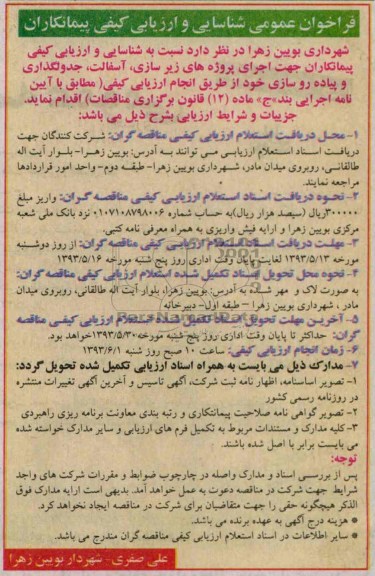 فراخوان عمومی شناسایی و ارزیابی کیفی پیمانکاران
شهرداری بویین زهرا در نظر دارد نسبت به شناسایی و ارزیابی کیفی
پیمانکاران جهت اجرای پروژه های زیر سازی، آسفالت، جدولگذاری
و پیاده رو سازی خود از طریق انجام ارزیابی کیفی( مطابق با آیین
نامه اجرایی بند»ج» ماده (۱۲) قانون برگزاری مناقصات) اقدام نماید.
جزییات و شرایط ارزیابی بشرح ذیل می باشد:
۱- محل دریافت استعلام ارزیابی کیفی مناقصه گران: شرکت کنندگان جهت
دریافت اسناد استعلام ارزیابی می توانند به آدرس: بویین زهرا- بلوار آیت اله
طالقانی، روبروی میدان مادر، شهرداری بویین زهرا- طبقه دوم- واحد امور قراردادها
مراجعه نمایند.
۲- نحوه دریافت اسناد استعلام ارزیابی کیفی مناقصه گران: واریز مبلغ
۳۰۰۰۰۰ریال (سیصد هزار ریال)به حساب شماره ۰۱۰۷۱۰۸۷۹۸۰۰۶ نزد بانک ملی شعبه
مرکزی بویین زهرا و ارایه فیش واریزی به همراه معرفی نامه کتبی.
۳- مهلت دریافت اسناد استعلام ارزیابی کیفی مناقصه گران: از روز دوشنبه
مورخه ۱۳۹۳/۵/۱۳ لغایت پایان وقت اداری روز پنج شنبه مورخه ۱۳۹۳/۵/۱۶
۴- نحوه محل تحویل اسناد تکمیل شده استعلام ارزیابی کیفی مناقصه گران:
به صورت لاک و مهر شده به آدرس: بویین زهرا، بلوار آیت اله طالقانی، روبروی میدان
مادر، شهرداری بویین زهرا – طبقه اول- دبیرخانه
۵- آخرین مهلت تحویل اسناد تکمیل شده استعلام ارزیابی کیفی مناقصه
گران: حداکثر تا پایان وقت اداری روز پنج شنبه مورخه۱۳۹۳/۵/۳۰خواهد بود.
۶- زمان انجام ارزیابی کیفی: ساعت ۱۰ صبح روز شنبه ۱۳۹۳/۶/۱
۷- مدارک ذیل می بایست به همراه اسناد ارزیابی تکمیل شده تحویل گردد:
۱- تصویر اساسنامه، اظهار نامه ثبت شرکت، آگهی تاسیس و آخرین آگهی تغییرات منتشره
در روزنامه رسمی کشور
۲- تصویر گواهی نامه صلاحیت پیمانکاری و رتبه بندی معاونت برنامه ریزی راهبردی
۳- کلیه مدارک و مستندات مربوط به تکمیل فرم های ارزیابی و سایر مدارک خواسته شده
می بایست برابر با اصل شده باشند.
توجه:
پس از بررسی اسناد و مدارک واصله در چارچوب ضوابط و مقررات شرکت های واجد
شرایط جهت شرکت در مناقصه دعوت به عمل خواهد آمد. بدیهی است ارایه مدارک فوق
الذکر هیچگونه حقی را جهت متقاضیان برای شرکت در مناقصه ایجاد نخواهد کرد.
* هزینه درج آگهی به عهده برنده می باشد.
* سایر اطلاعات در اسناد استعلام ارزیابی کیفی مناقصه گران مندرج می باشد.
علی صفری- شهردار بویین زهرا